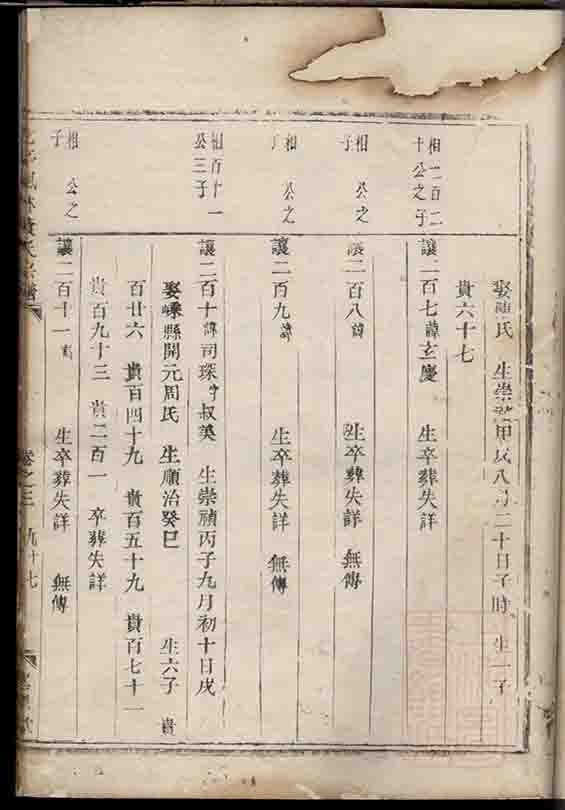 娶陳氏 生崇禎甲戌八月二十日子時 生一子
貴六十七
相一百二
十公之子
讓二百七 諱玄慶 生卒葬失詳
相 公之
子
讓二百八 諱 生卒葬失詳 無傳
相 公之
子
讓二百九 諱 生卒葬失詳 無傳
相百十一
公三子
讓二百十 諱司琛 字叔美 生崇禎丙子九月初十日戌
娶嵊縣開元周氏 生順治癸巳 生六子 貴
百廿六 貴百四十九 貴百五十九 貴百七十一
貴百九十三 貴二百一 卒葬失詳
相 公之
子
讓二百十一 諱 生卒葬失詳 無傳
氏宗譜 卷之三 九十七